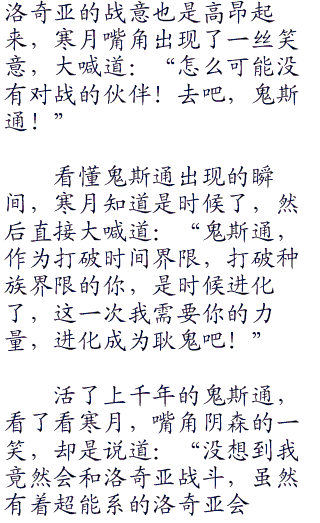 洛奇亚的战意也是高昂起
来，寒月嘴角出现了一丝笑
意，大喊道：“怎么可能没
有对战的伙伴！去吧，鬼斯
通！”
看懂鬼斯通出现的瞬
间，寒月知道是时候了，然
后直接大喊道：“鬼斯通，
作为打破时间界限，打破种
族界限的你，是时候进化
了，这一次我需要你的力
量，进化成为耿鬼吧！”
活了上千年的鬼斯通，
看了看寒月，嘴角阴森的一
笑，却是说道：“没想到我
竟然会和洛奇亚战斗，虽然
有着超能系的洛奇亚会